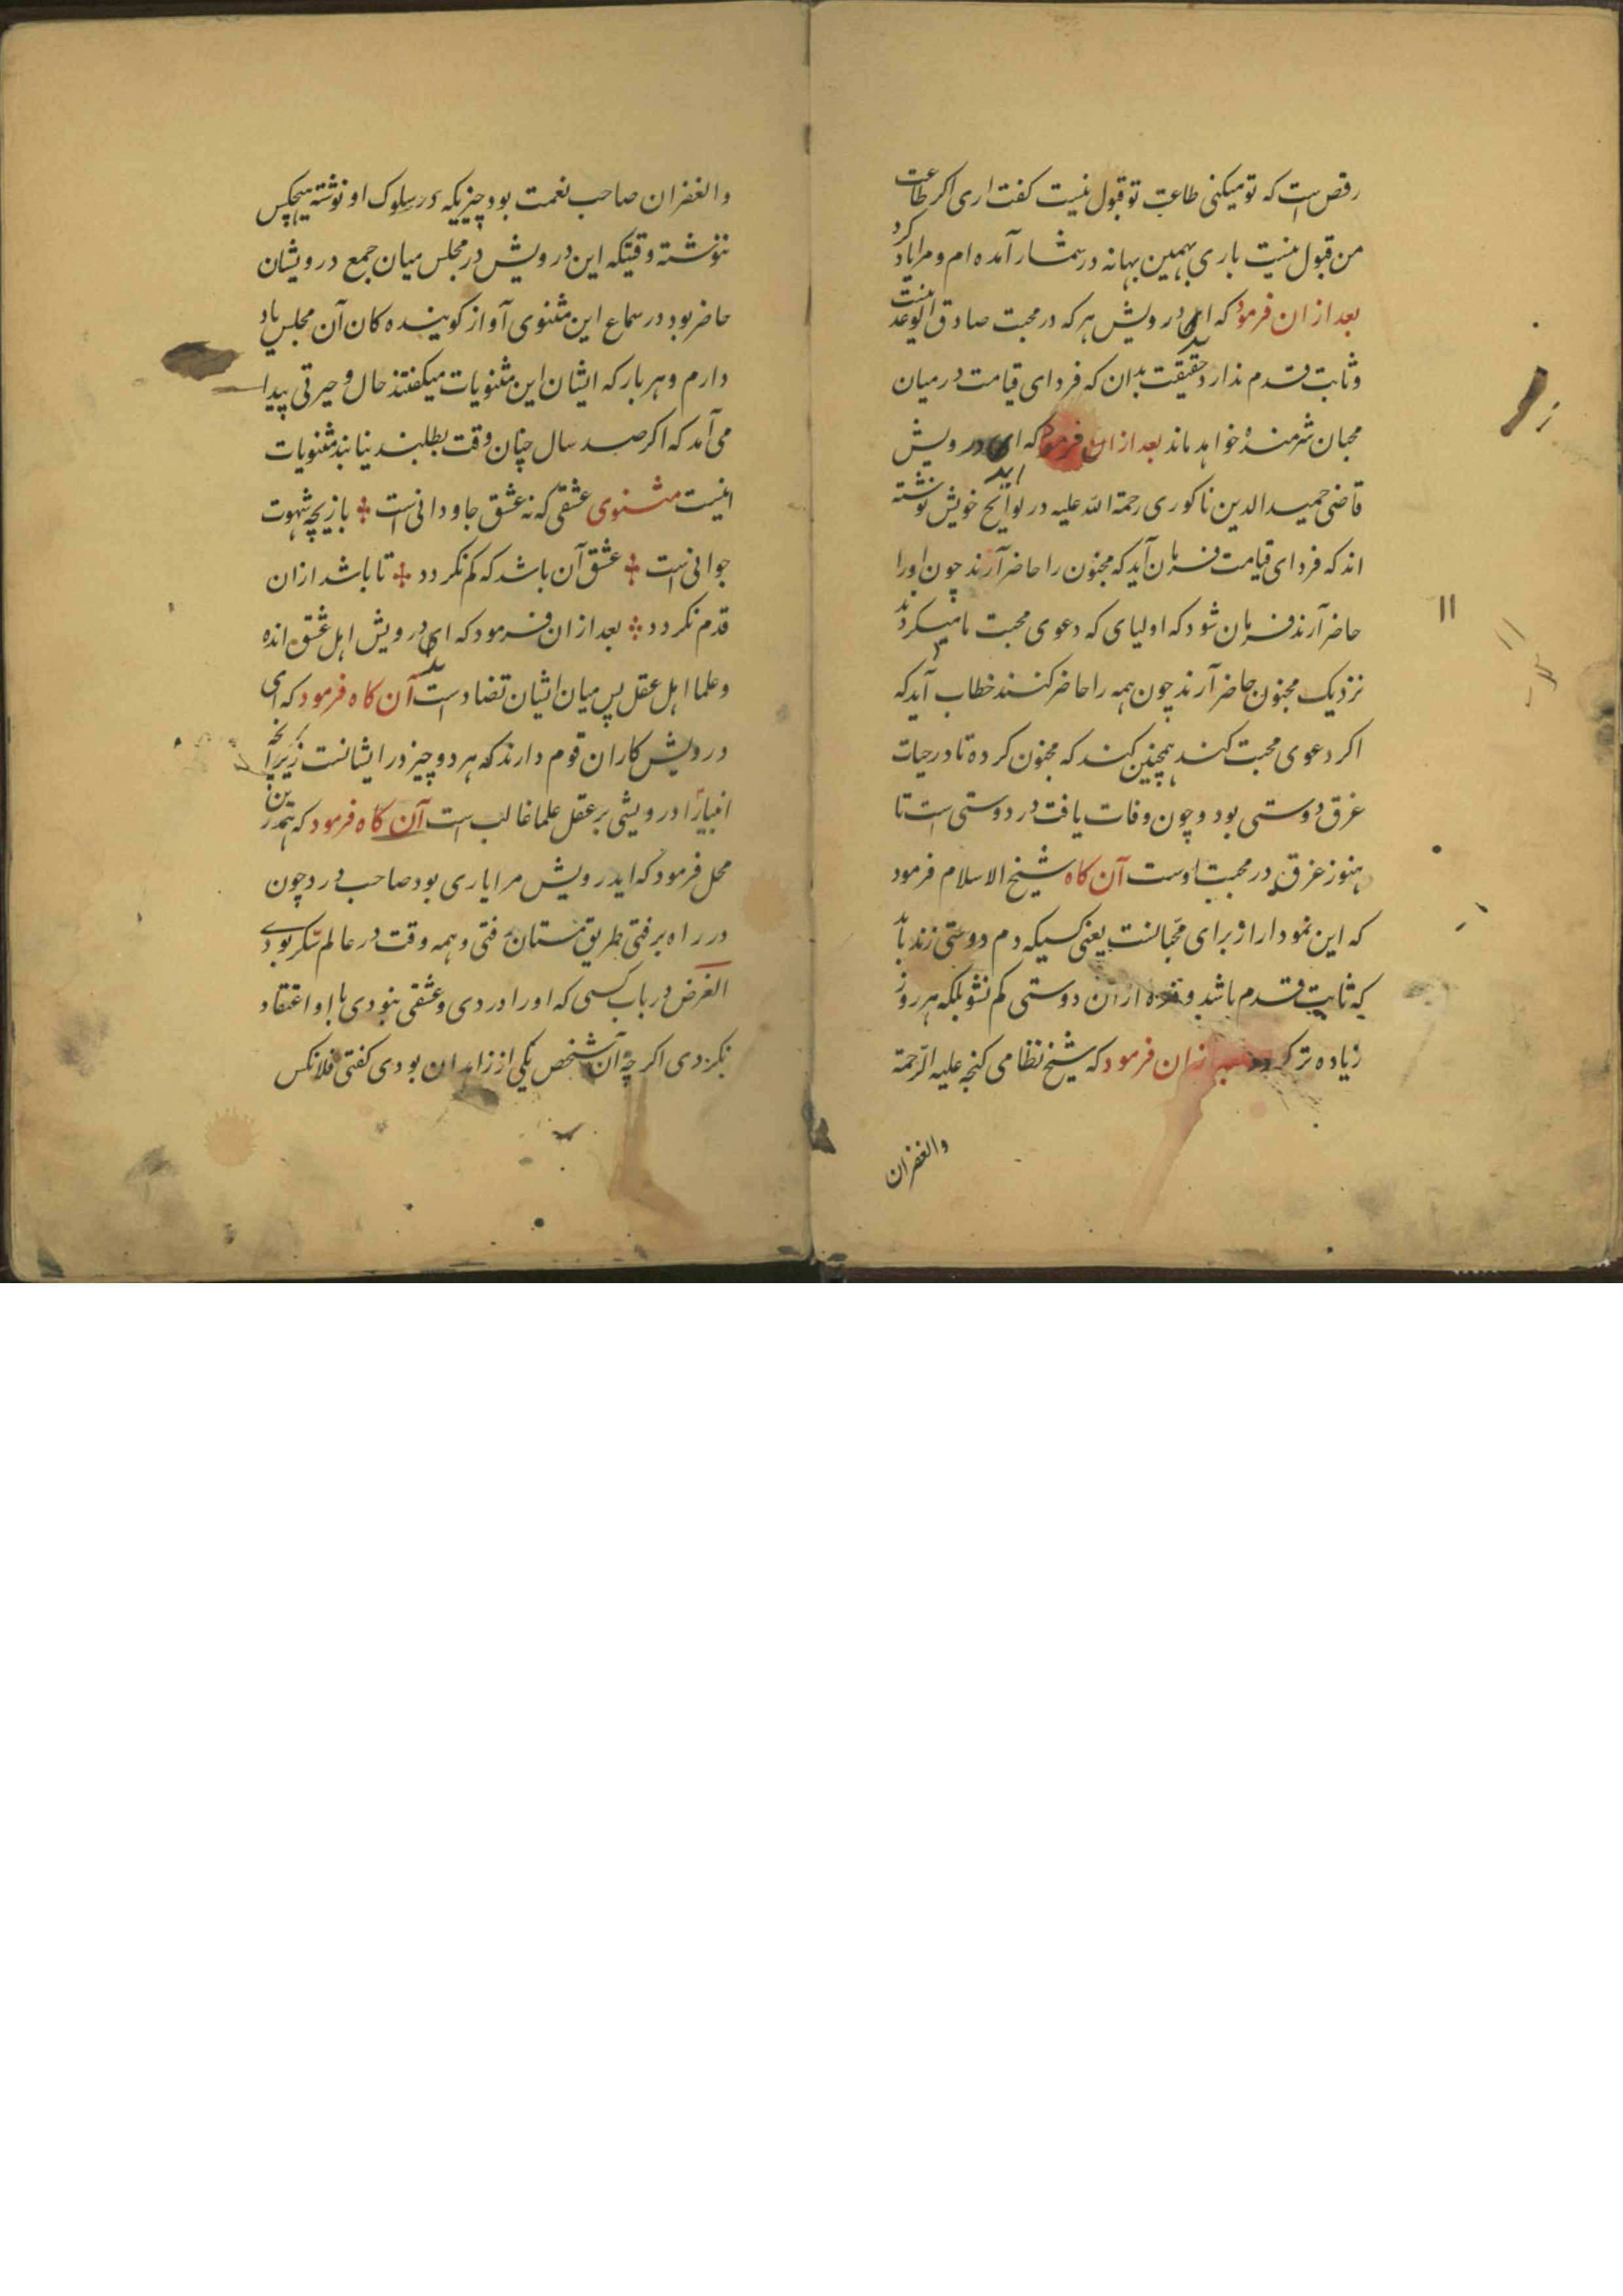 رقص است که تو میکنی طاعت تو قبول نیست کفت اری اکر طاعت
من قبول نیست باری بهمین بهانه در شمار آمده ام و مرا یاد کرد
بعد ازان فرمود که ای درویش هر که در محبت صادق الوعد نیست
و ثابت قدم ندارد حقیقت بدان که فردای قیامت درمیان
محبان شرمنده خواهد ماند بعد ازان فرمود که ای درویش
قاضی حمید الدین ناکوری رحمة الله علیه در لوایح خویش نوشته
اند که فردای قیامت فرمان آید که مجنون را حاضر آرند چون اورا
حاضر آرند فرمان شود که اولیای که دعوی محبت ما میکردند
نزدیک مجنون حاضر آرند چون همه را حاضر کنند خطاب آید که
اکر دعوی محبت کنند همچنین کنند که مجنون کرده تا در حیات
غرق دوستی بود و چون وفات یافت در دوستی است تا
هنوز غرق در محبت اوست آن کاه شیخ الاسلام فرمود
که این نمودار از برای محبانست یعنی کسیکه دم دوستی زند باید
که ثابت قدم باشد و ذره ازان دوستی کم نشو بلکه هر روز
زیاده تر کردد بعد ازان فرمود که شیخ نظامی کنجه علیه الرحمة
والغفران
والغفران صاحب نعمت بود چیزیکه در سلوک او نوشته هیچکس
ننوشته وقتیکه این درویش در مجلس میان جمع درویشان
حاضر بود در سماع این مثنوی آواز کوینده کان آن مجلس یاد
دارم و هر بار که ایشان این مثنویات میکفتند حال و حیرتی پیدا
می آمد که اکر صد سال چنان وقت بطلبند نیابند مثنویات
اینست مثنوی عشقی که نه عشق جاودانی است بازیچه شهوت
جوانی است عشق آن باشد که کم نکردد تا باشد ازان
قدم نکردد بعد ازان فرمود که ای درویش اهل عشق اند
و علما اهل عقل پس میان ایشان تضاد است آن کاه فرمود که ای
درویش کار ان قوم دارند که هر دو چیز در ایشانست زیرا نچه
انبیا را درویشی بر عقل علما غالب است آن کاه فرمود که همدرین
محل فرمود که ایدرویش مرا یاری بود صاحب درد چون
در راه برفتی بطریق مستان رفتی و همه وقت در عالم سکر بودی
الغرض در باب کسی که اورا دردی و عشقی نبودی با او اعتقاد
نکردی اکر چه آن شخص یکی از زاهدان بودی کفتی فلانکس